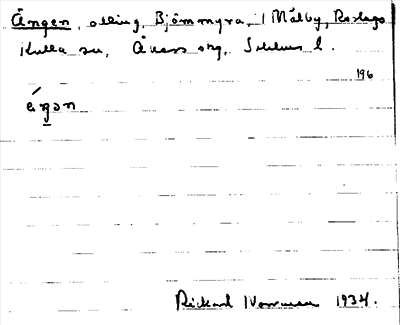 Ängen, olling, Björnmyra, 1 Målby, Roslags
Kulla sn, Åkers skg, Sthlms l.
196
Rickard 1934.